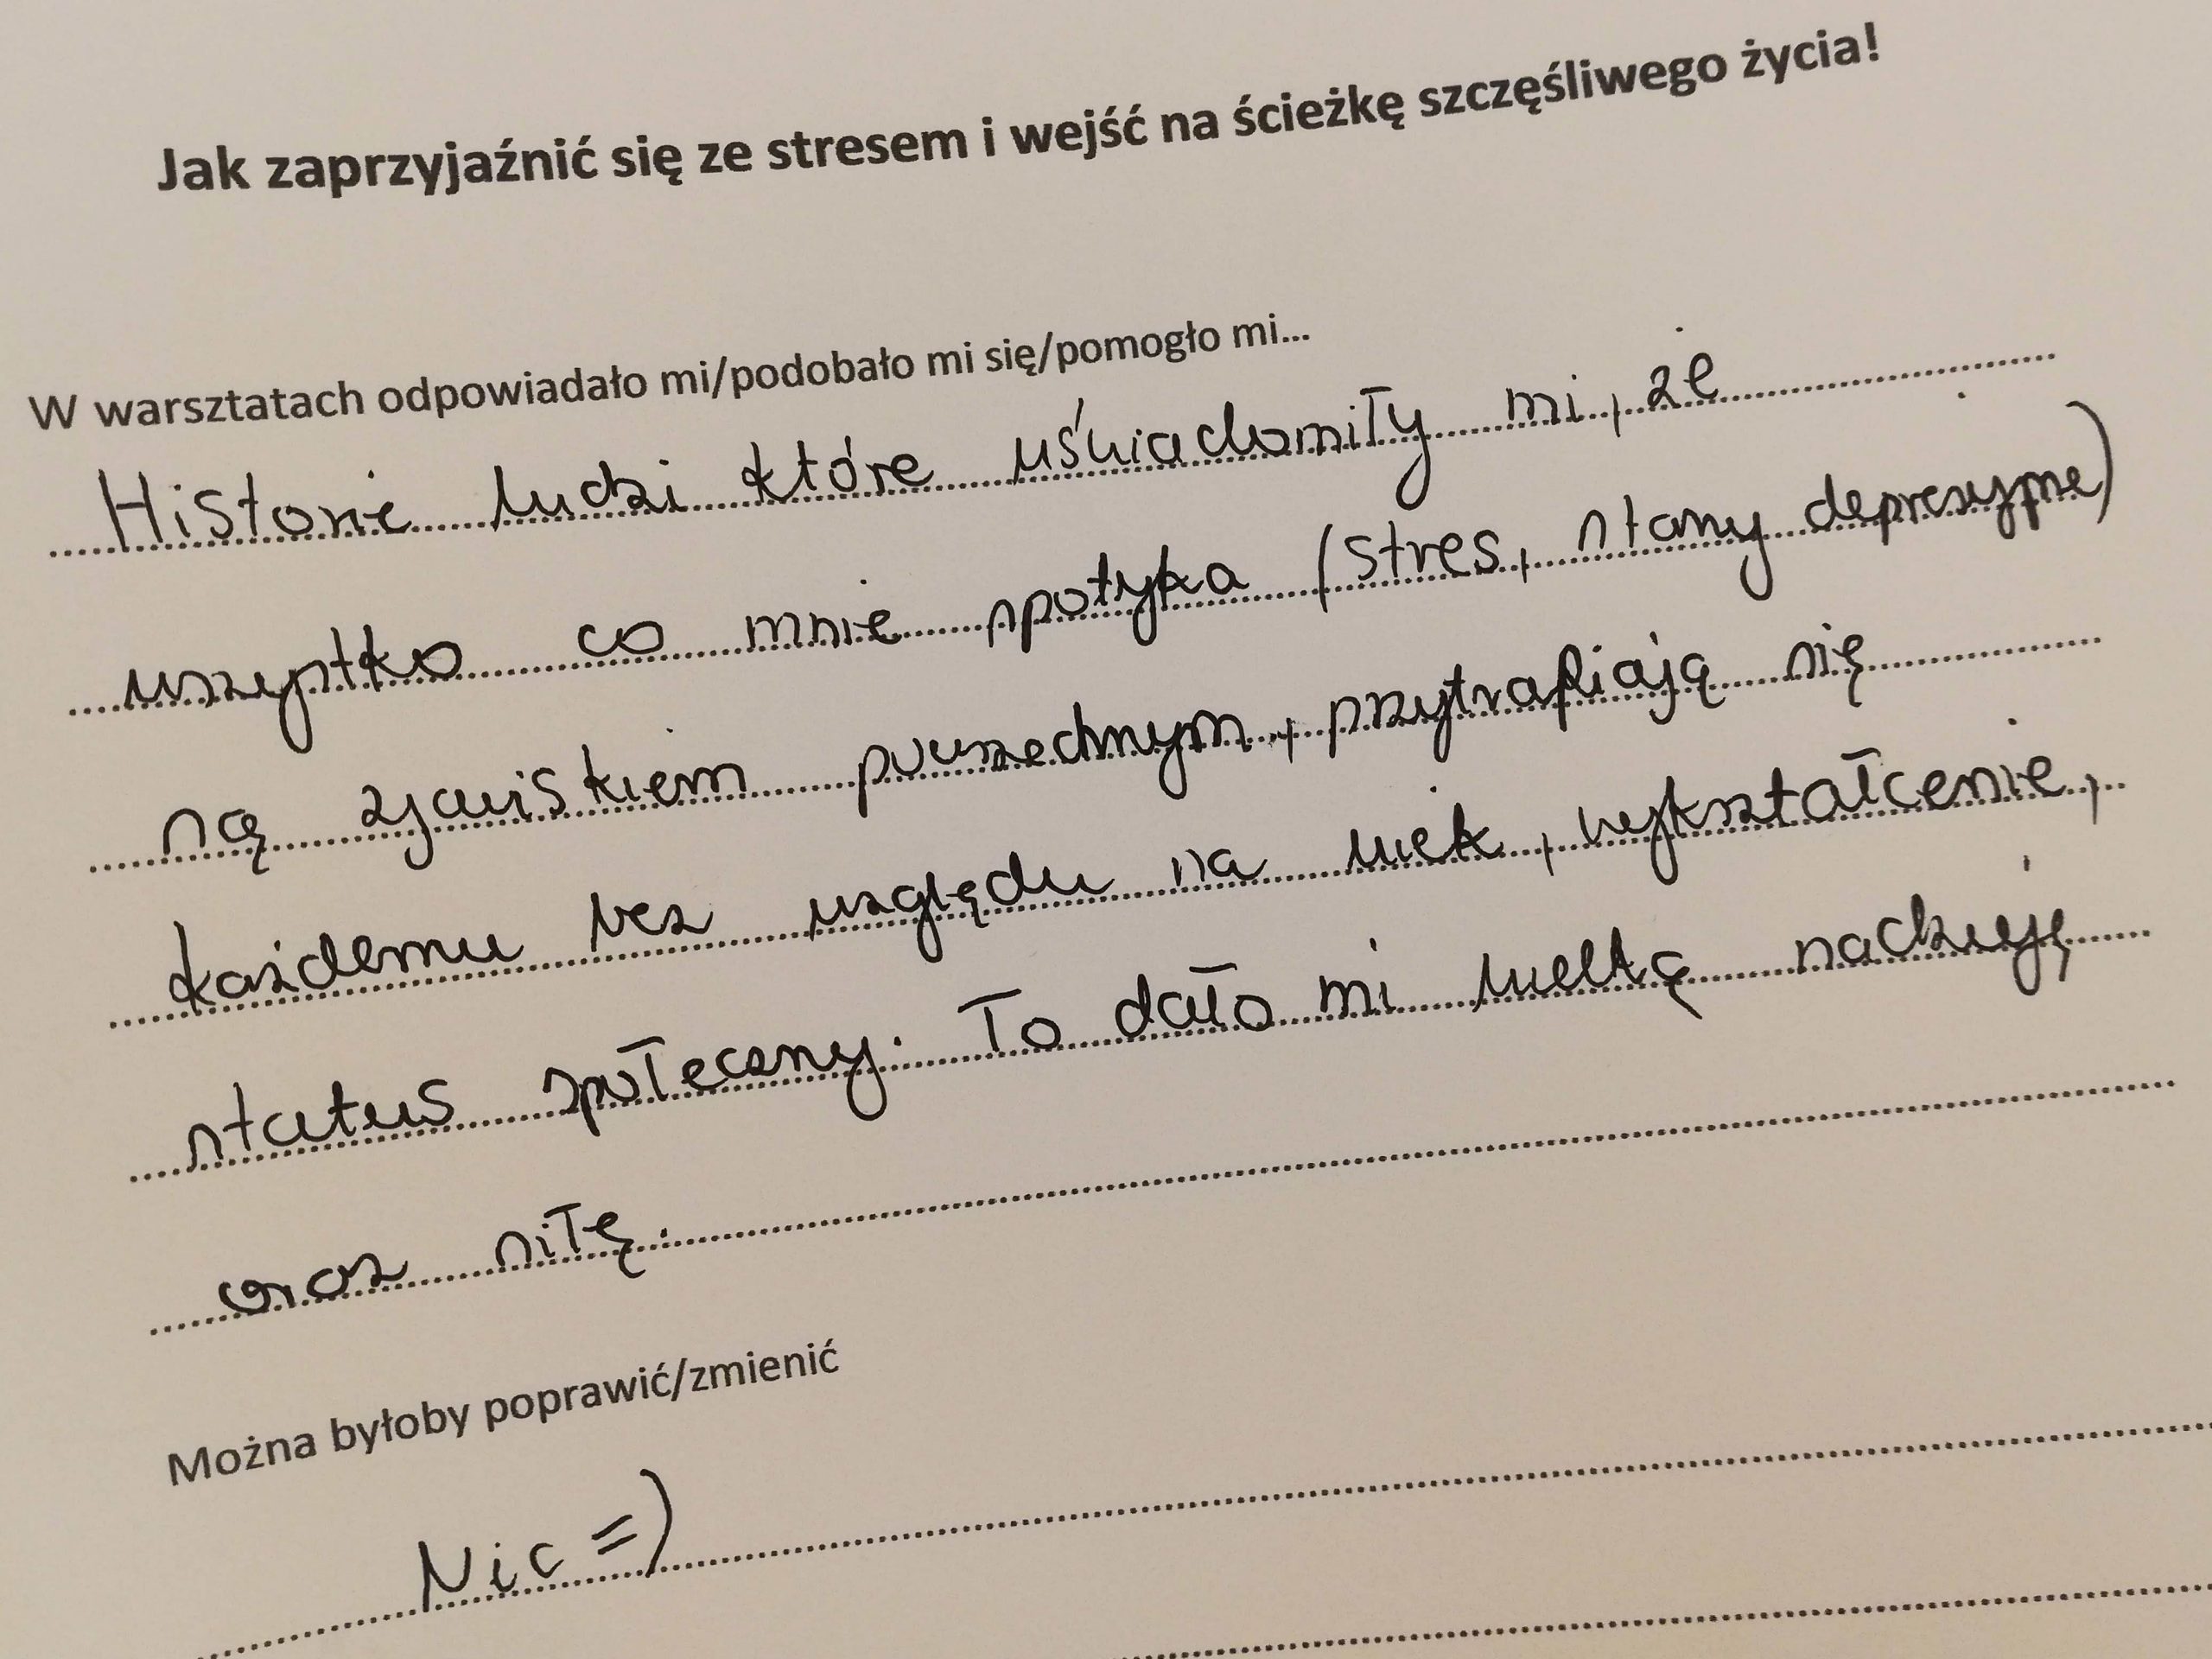 Jak zaprzyjaźnić się ze stresem i wejść na ścieżkę szczęśliwego życia!
W warsztatach odpowiadało mi/podobało mi się/pomogło mi...
Historie ludzi które uświadomiły mi, że
wszystko co mnie spotyka (stres, stany depresyjne)
są zjawiskiem powszechnym, przytrafiają się
każdemu bez względu na wiek, wykształcenie,
status społeczny. To dało mi wielką nadzieję
oraz siłę.
Można byłoby poprawić/zmienić
Nic =)